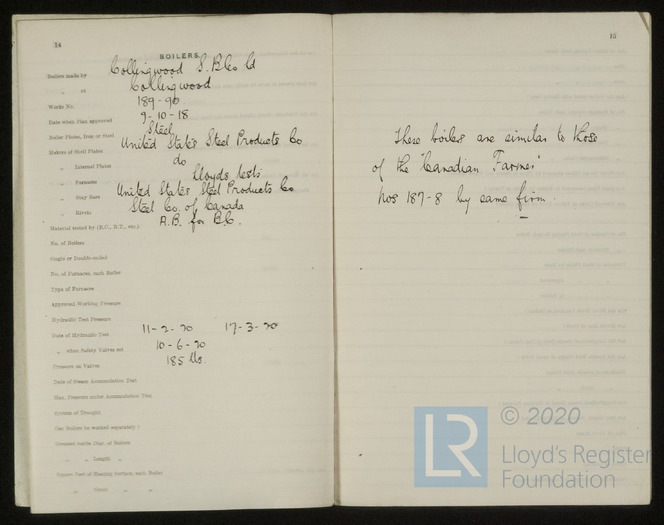 14
BOILERS.
Boilers made by Collingwood S. B. Co Ld
„ at Collingwood
Works No. 189-90.
Date when Plan approved 9-10-18.
Boiler Plates, Iron or Steel Steel
Makers of Shell Plates United States Steel Products Co
„ Internal Plates do
„ Furnaces Lloyds tests
„ Stay Bars United States Steel Products Co
„ Rivets Steel Co. of Canada
Material tested by (B.C., B.T., etc.) A.B. for B.C.
No. of Boilers
Single or Double-ended
No. of Furnaces, each Boiler
Type of Furnaces
Approved Working Pressure
Hydraulic Test Pressure
Date of Hydraulic Test 11-2-20 17-3-20
„ when Safety Valves set 10-6-20
Pressure on Valves 185 lbs.
Date of Steam Accumulation Test
Max. Pressure under Accumulation Test
System of Draught
Can Boilers be worked separately?
Greatest Inside Diar. of Boilers
„ „ Length „
Square Feet of Heating Surface, each Boiler
„ „ Grate „ „
15
These boilers are similar to those
of the "Canadian Farmer"
Nos 187-8 by same firm.
© 2020
LR
Lloyd's Register
Foundation